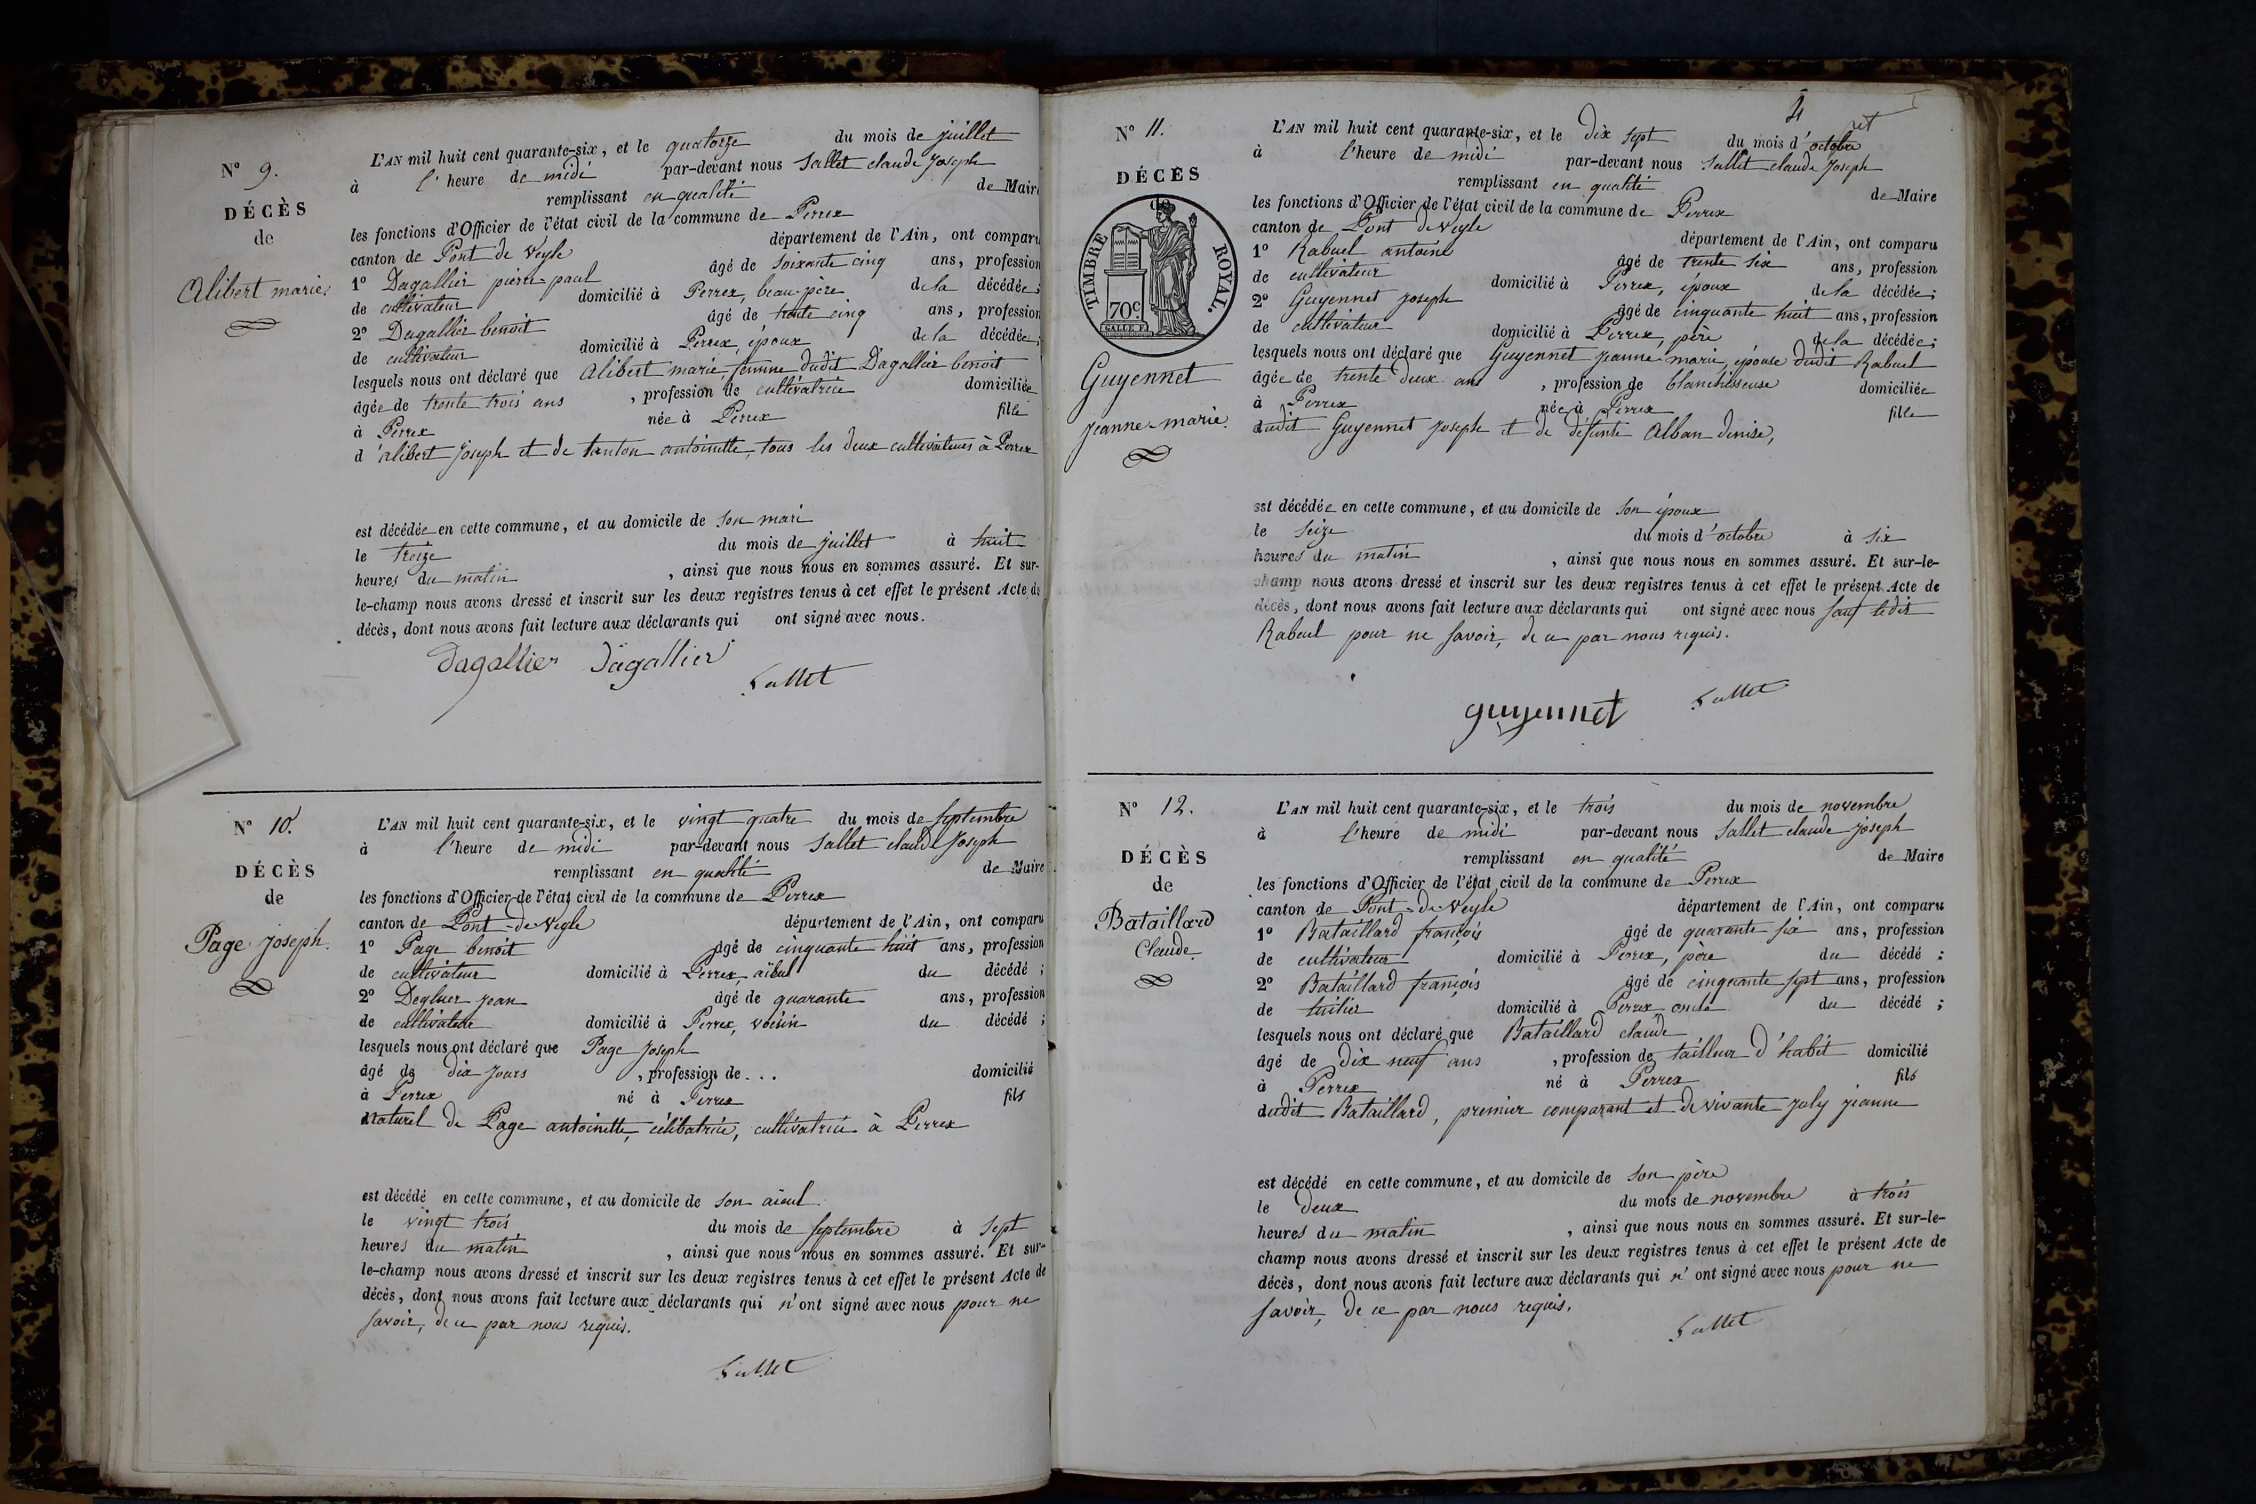 N° 9.
DÉCÈS
de
Alibert marie.
L'AN mil huit cent quarante-six, et le quatorze du mois de juillet
à l'heure de midi par-devant nous Sallet claude Joseph
remplissant en qualité de Maire
les fonctions d'Officier de l'état civil de la commune de Perrex
canton de Pont de Veyle département de l'Ain, ont comparu
1° Dagallier pierre paul âgé de soixante cinq ans, profession
de cultivateur domicilié à Perrex, beau-père de la décédée;
2° Dagallier benoit âgé de trente cinq ans, profession
de cultivateur domicilié à Perrex, époux de la décédée;
lesquels nous ont déclaré que Alibert marie, femme dudit Dagallier benoit
âgée de trente trois ans, profession de cultivatrice domiciliée
à Perrex née à Perrex fille
d'alibert Joseph et de tanton antoinette, tous les deux cultivateurs à Perrex
est décédée en cette commune, et au domicile de son mari
le treize du mois de juillet à huit
heures du matin, ainsi que nous nous en sommes assuré. Et sur-
le-champ nous avons dressé et inscrit sur les deux registres tenus à cet effet le présent Acte de
décès, dont nous avons fait lecture aux déclarants qui ont signé avec nous.
Dagallier Dagallier
Sallet
N° 10.
DÉCÈS
de
Page Joseph.
L'AN mil huit cent quarante-six, et le vingt quatre du mois de septembre
à l'heure de midi par-devant nous Sallet claude Joseph
remplissant en qualité de Maire
les fonctions d'Officier de l'état civil de la commune de Perrex
canton de Pont-de-Veyle département de l'Ain, ont comparu
1° Page benoit âgé de cinquante huit ans, profession
de cultivateur domicilié à Perrex, aïeul du décédé;
2° Degluer jean âgé de quarante ans, profession
de cultivateur domicilié à Perrex, voisin du décédé;
lesquels nous ont déclaré que Page Joseph
âgé de dix jours, profession de... domicilié
à Perrex né à Perrex fils
naturel de Page antoinette, célibatrice, cultivatrice à Perrex
est décédé en cette commune, et au domicile de son aïeul
le vingt trois du mois de septembre à sept
heures du matin, ainsi que nous nous en sommes assuré. Et sur-
le-champ nous avons dressé et inscrit sur les deux registres tenus à cet effet le présent Acte de
décès, dont nous avons fait lecture aux déclarants qui n'ont signé avec nous pour ne
savoir, de ce par nous requis.
Sallet
4
N° 11.
DÉCÈS
TIMBRE ROYAL.
70c
Guyennet
Jeanne-marie.
L'AN mil huit cent quarante-six, et le dix sept du mois d'octobre
à l'heure de midi par-devant nous Sallet claude Joseph
remplissant en qualité de Maire
les fonctions d'Officier de l'état civil de la commune de Perrex
canton de Pont de Veyle département de l'Ain, ont comparu
1° Rabuel antoine âgé de trente six ans, profession
de cultivateur domicilié à Perrex, époux de la décédée;
2° Guyennet Joseph âgé de cinquante huit ans, profession
de cultivateur domicilié à Perrex, père de la décédée;
lesquels nous ont déclaré que Guyennet Jeanne-marie, épouse dudit Rabuel
âgée de trente deux ans, profession de blanchisseuse domiciliée
à Perrex née à Perrex fille
dudit Guyennet Joseph et de défunte Alban denise,
est décédée en cette commune, et au domicile de son époux
le seize du mois d'octobre à six
heures du matin, ainsi que nous nous en sommes assuré. Et sur-le-
champ nous avons dressé et inscrit sur les deux registres tenus à cet effet le présent Acte de
décès, dont nous avons fait lecture aux déclarants qui ont signé avec nous sauf ledit
Rabuel pour ne savoir, de ce par nous requis.
guyennet Sallet
N° 12.
DÉCÈS
de
Bataillard
Claude.
L'AN mil huit cent quarante-six, et le trois du mois de novembre
à l'heure de midi par-devant nous Sallet claude Joseph
remplissant en qualité de Maire
les fonctions d'Officier de l'état civil de la commune de Perrex
canton de Pont-de-Veyle département de l'Ain, ont comparu
1° Bataillard françois âgé de quarante six ans, profession
de cultivateur domicilié à Perrex, père du décédé;
2° Bataillard françois âgé de cinquante sept ans, profession
de tuilier domicilié à Perrex oncle du décédé;
lesquels nous ont déclaré que Bataillard claude
âgé de dix neuf ans, profession de tailleur d'habit domicilié
à Perrex né à Perrex fils
dudit Bataillard, premier comparant et de vivante Joly jeanne
est décédé en cette commune, et au domicile de son père
le deux du mois de novembre à trois
heures du matin, ainsi que nous nous en sommes assuré. Et sur-le-
champ nous avons dressé et inscrit sur les deux registres tenus à cet effet le présent Acte de
décès, dont nous avons fait lecture aux déclarants qui n'ont signé avec nous pour ne
savoir, de ce par nous requis.
Sallet